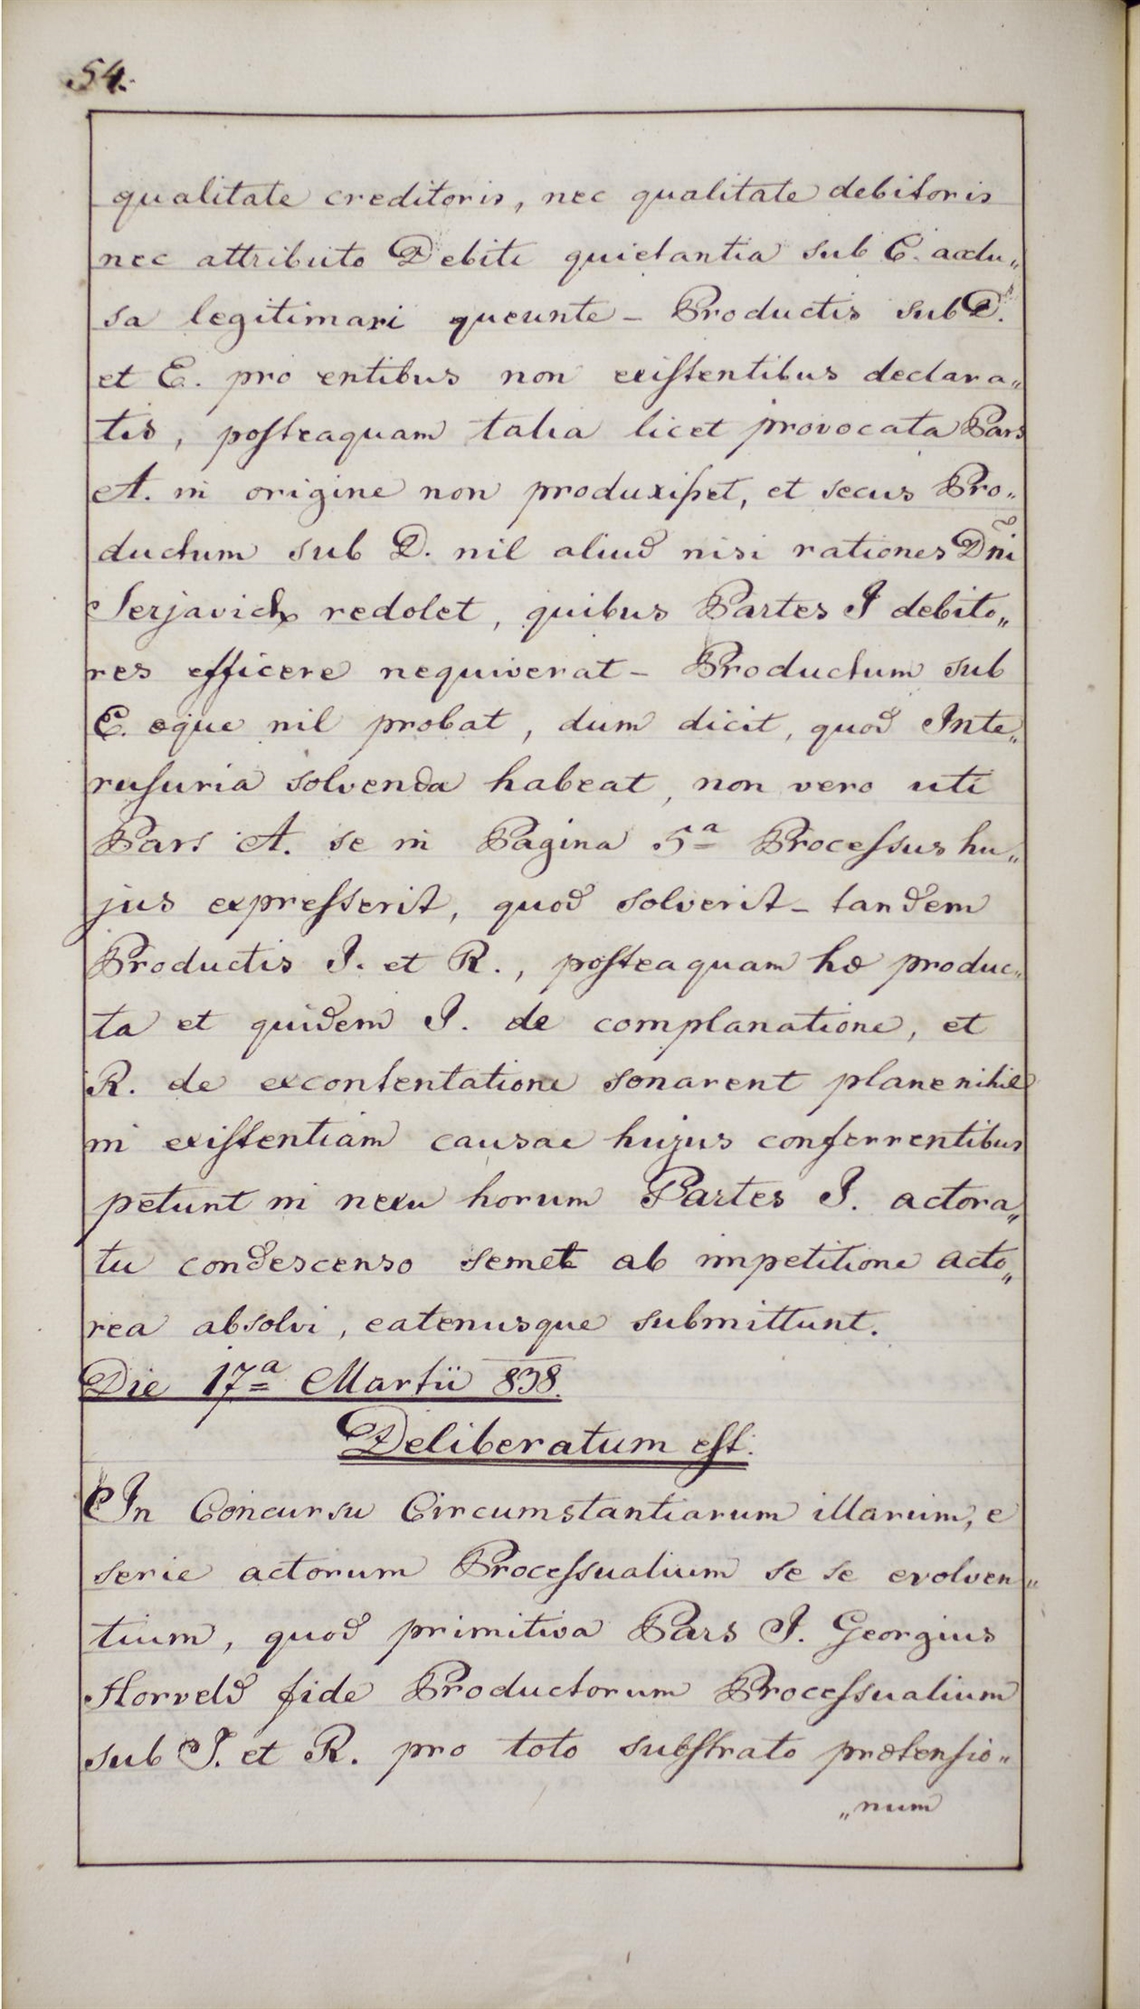 54.
qualitate creditoris, nec qualitate debitoris
nec attributo Debiti quietantia sub C. addu„
sa legitimari queunte – Productis sub D.
et E. pro entibus non existentibus declara„
tis, posteaquam talia licet provocata Pars
A. in origine non produxisset, et secus Pro„
ductum sub D. nil aliud nisi rationes Dni
Serjavich redolet, quibus Partes I debito„
res efficere nequiverat – Productum sub
E. æque nil probat, dum dicit, quod Inte„
rusuria solvenda habeat, non vero uti
Pars A. se in Pagina 5a Processus hu„
jus expresserit, quod solverit – tandem
Productis J. et R., posteaquam hæ produc„
ta et quidem J. de complanatione, et
R. de excontentatione sonarent plane nihil
in existentiam causae hujus conferrentibus
petunt in nexu horum Partes I. actora„
tu condescenso semet ab impetitione acto„
rea absolvi, eatenusque submittunt.
Die 17a Martii 838.
Deliberatum est.
In Concursu Circumstantiarum illarum, e
serie actorum Processualium se se evolven„
tium, quod primitiva Pars I. Georgius
Horveld fide Productorum Processualium
sub J. et R. pro toto substrato prætensio„
„num